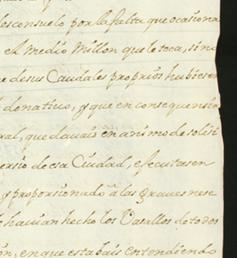 desconsuelo por la falta que ocasiona
el Medio Millon que le toca, si no
de sus Caudales proprios hubiesen
donativo, y que en consequencia
ral, que davais en animo de solici
ercio de esa Ciudad, efecutasen
y proporsionado â las graves nese
havian hecho los Vasallos de todos
ôn, en que estabais entendiendo